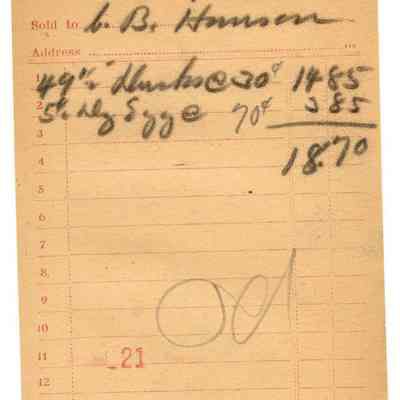 Sold to C. B. Hansen
Address
1 49½ Ducks @ 30¢ 14 85
2 5½ Dz Eggs @ 70¢ 3 85
3
18 70
4
5
6
7
8
9
10
11 21
12